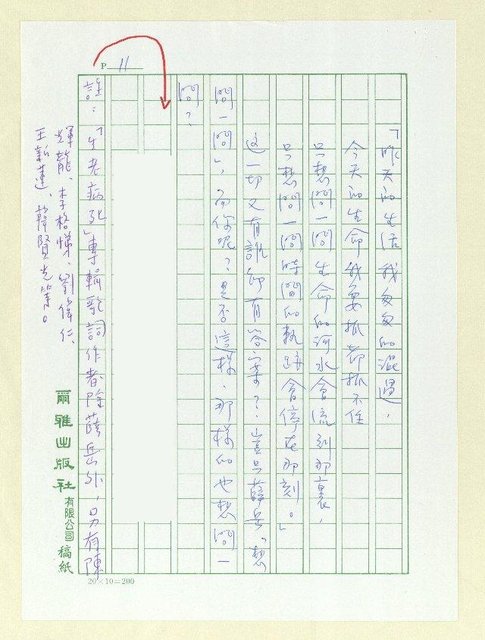 P. 11
「昨天的生活 我匆匆的混過,
今天的生命 我要抓卻抓不住
只想問一問生命的河水會流到那裏,
只想問一問時間的軌跡會停在那刻。」
這一切又有誰卻有答案?豈只薛岳「想
問一問」,而你呢?是否這樣、那樣的也想問一
問?
註:「生老病死」專輯歌詞作者除薛岳外,另有陳
輝龍、李格悌、劉偉仁、
王新蓮、韓賢光等。
爾雅出版社 有限公司 稿紙
20×10=200